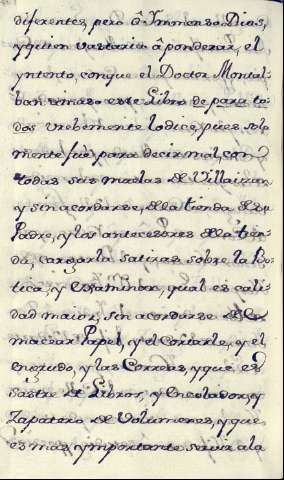 diferentes, pero ô Ymmenso Dios,
y quien vastaria â ponderar, el
yntento, con que el Doctor Montal-
ban este Libro de para to-
dos vrebemente lo dice, pues solo
mente fué para decir mal, con
todas sus de Villaizan
y sin acordarse, de la tienda de su
Padre, y los antecesores de la tien-
da, cargarla satiras sobre la Bo-
tica, y Examinar, qual es cali-
dad maior, sin acordarse
macear Papel, y el Cortarle, y el
engrudo, y las Correas, y que, es
sastre de Libros, y Encolador, y
Zapatero de Volumenes, y que
es mas ymportante servir a la